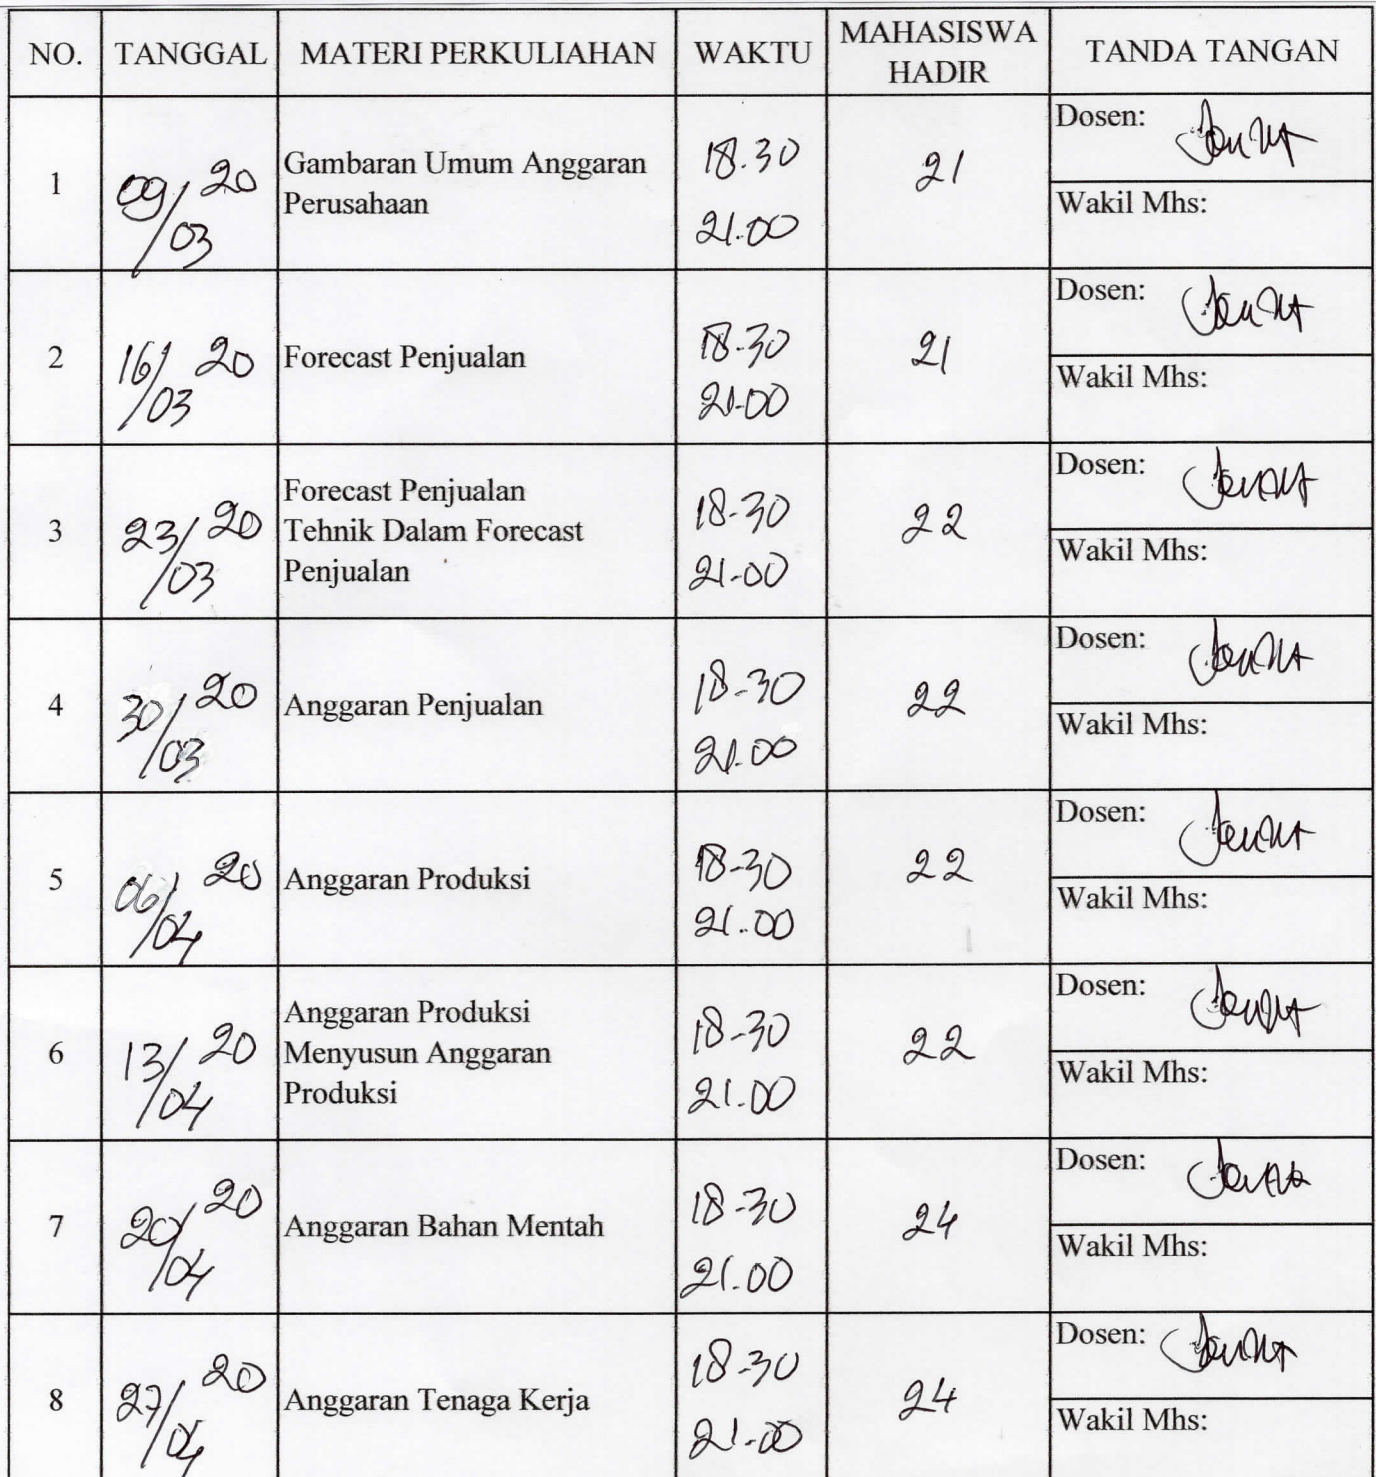 NO. TANGGAL MATERI PERKULIAHAN WAKTU MAHASISWA HADIR TANDA TANGAN
1 09/03 20 Gambaran Umum Anggaran Perusahaan 18.30 21.00 21 Dosen:
Wakil Mhs:
2 16/03 20 Forecast Penjualan 18-30 21-00 21 Dosen:
Wakil Mhs:
3 23/03 20 Forecast Penjualan Tehnik Dalam Forecast Penjualan 18-30 21-00 22 Dosen:
Wakil Mhs:
4 30/03 20 Anggaran Penjualan 18-30 21.00 22 Dosen:
Wakil Mhs:
5 06/04 20 Anggaran Produksi 18-30 21.00 22 Dosen:
Wakil Mhs:
6 13/04 20 Anggaran Produksi Menyusun Anggaran Produksi 18-30 21.00 22 Dosen:
Wakil Mhs:
7 20/04 20 Anggaran Bahan Mentah 18-30 21.00 24 Dosen:
Wakil Mhs:
8 27/04 20 Anggaran Tenaga Kerja 18-30 21-00 24 Dosen:
Wakil Mhs: